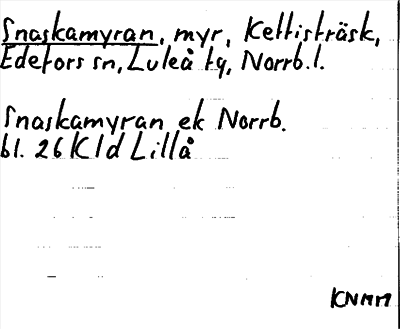 Snaskamyran, myr, Kettisträsk,
Edefors sn, Luleå tg, Norrb.l.
Snaskamyran ek Norrb.
bl. 26 K1d Lillå
KNMM